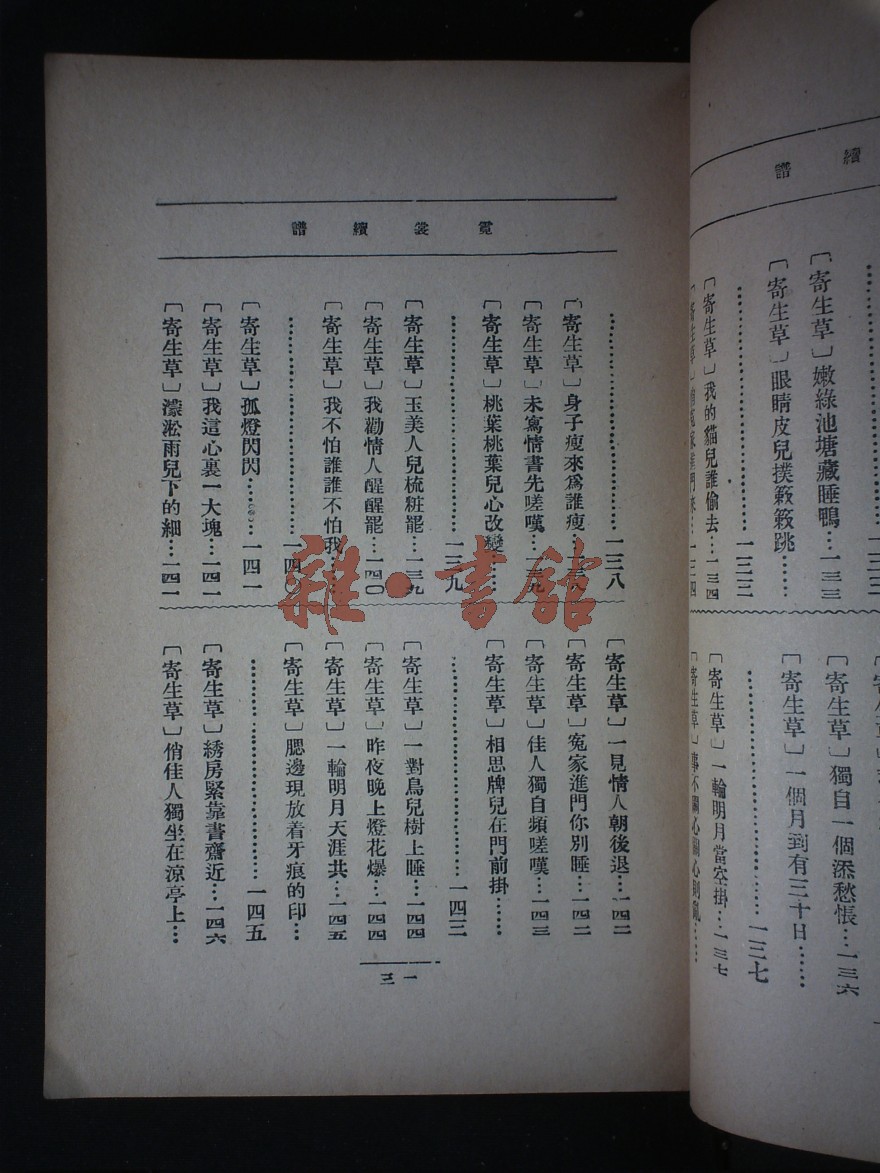 續譜
……一三二
〔寄生草〕嫩綠池塘藏睡鴨…一三三
〔寄生草〕眼睛皮兒撲簌簌跳……
……一三三
〔寄生草〕我的貓兒誰偷去…一三四
〔寄生草〕獨自一個添愁悵…一三六
〔寄生草〕一個月到有三十日……
……一三七
〔寄生草〕一輪明月當空掛…一三七
霓裳續譜
……一三八
〔寄生草〕身子瘦來爲誰瘦…一三八
〔寄生草〕未寫情書先嗟嘆…一三九
〔寄生草〕桃葉桃葉兒心改變……
……一三九
〔寄生草〕玉美人兒梳粧罷…一三九
〔寄生草〕我勸情人醒醒罷…一四〇
〔寄生草〕我不怕誰誰不怕我……
……一四〇
〔寄生草〕孤燈閃閃……一四一
〔寄生草〕我這心裏一大塊…一四一
〔寄生草〕濛淞雨兒下的細…一四一
〔寄生草〕一見情人朝後退…一四二
〔寄生草〕冤家進門你別睡…一四二
〔寄生草〕佳人獨自頻嗟嘆…一四三
〔寄生草〕相思牌兒在門前掛……
……一四三
〔寄生草〕一對鳥兒樹上睡…一四四
〔寄生草〕昨夜晚上燈花爆…一四四
〔寄生草〕一輪明月天涯共…一四五
〔寄生草〕腮邊現放着牙痕的印…
……一四五
〔寄生草〕綉房緊靠書齋近…一四六
〔寄生草〕俏佳人獨坐在涼亭上…
一三
雜·書館